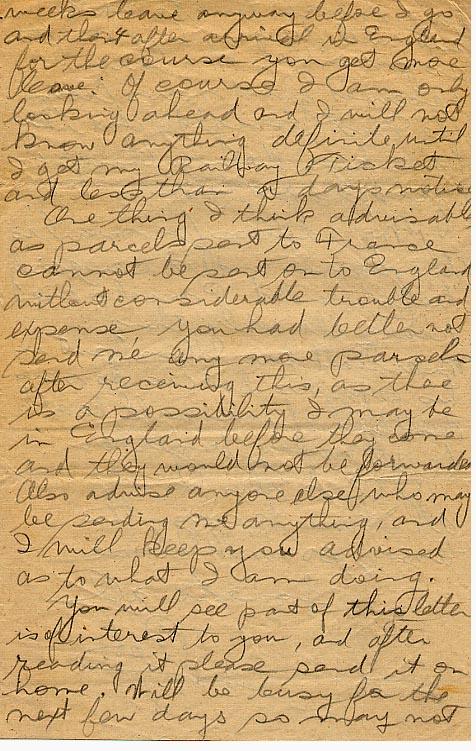 weeks leave anyway before I go
and then after arrival in England
for the course you get more
leave. Of course I am only
looking ahead and I will not
know anything definite until
I get my Railway Ticket
and less than a days notice
One thing I think advisable
as parcels sent to France
cannot be sent on to England
without considerable trouble and
expense you had better not
send me any more parcels
after receiving this, as there
is a possibility I may be
in England before they come
and they would not be forwarded
Also advise anyone else who may
be sending me anything, and
I will keep you advised
as to what I am doing.
You will see part of this letter
is of interest to you, and after
reading it please send it on
home. Will be busy for the
next few days so may not